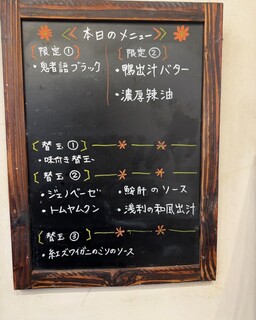 本日のメニュー
[限定①]
・忍者語ブラック
[限定②]
・鴨出汁バター
・濃厚辣油
[替玉①]
・味付き替玉
[替玉②]
・ジェノベーゼ
・トムヤムクン
・鮟肝のソース
・浅利の和風出汁
[替玉③]
・紅ズワイガニのミソのソース